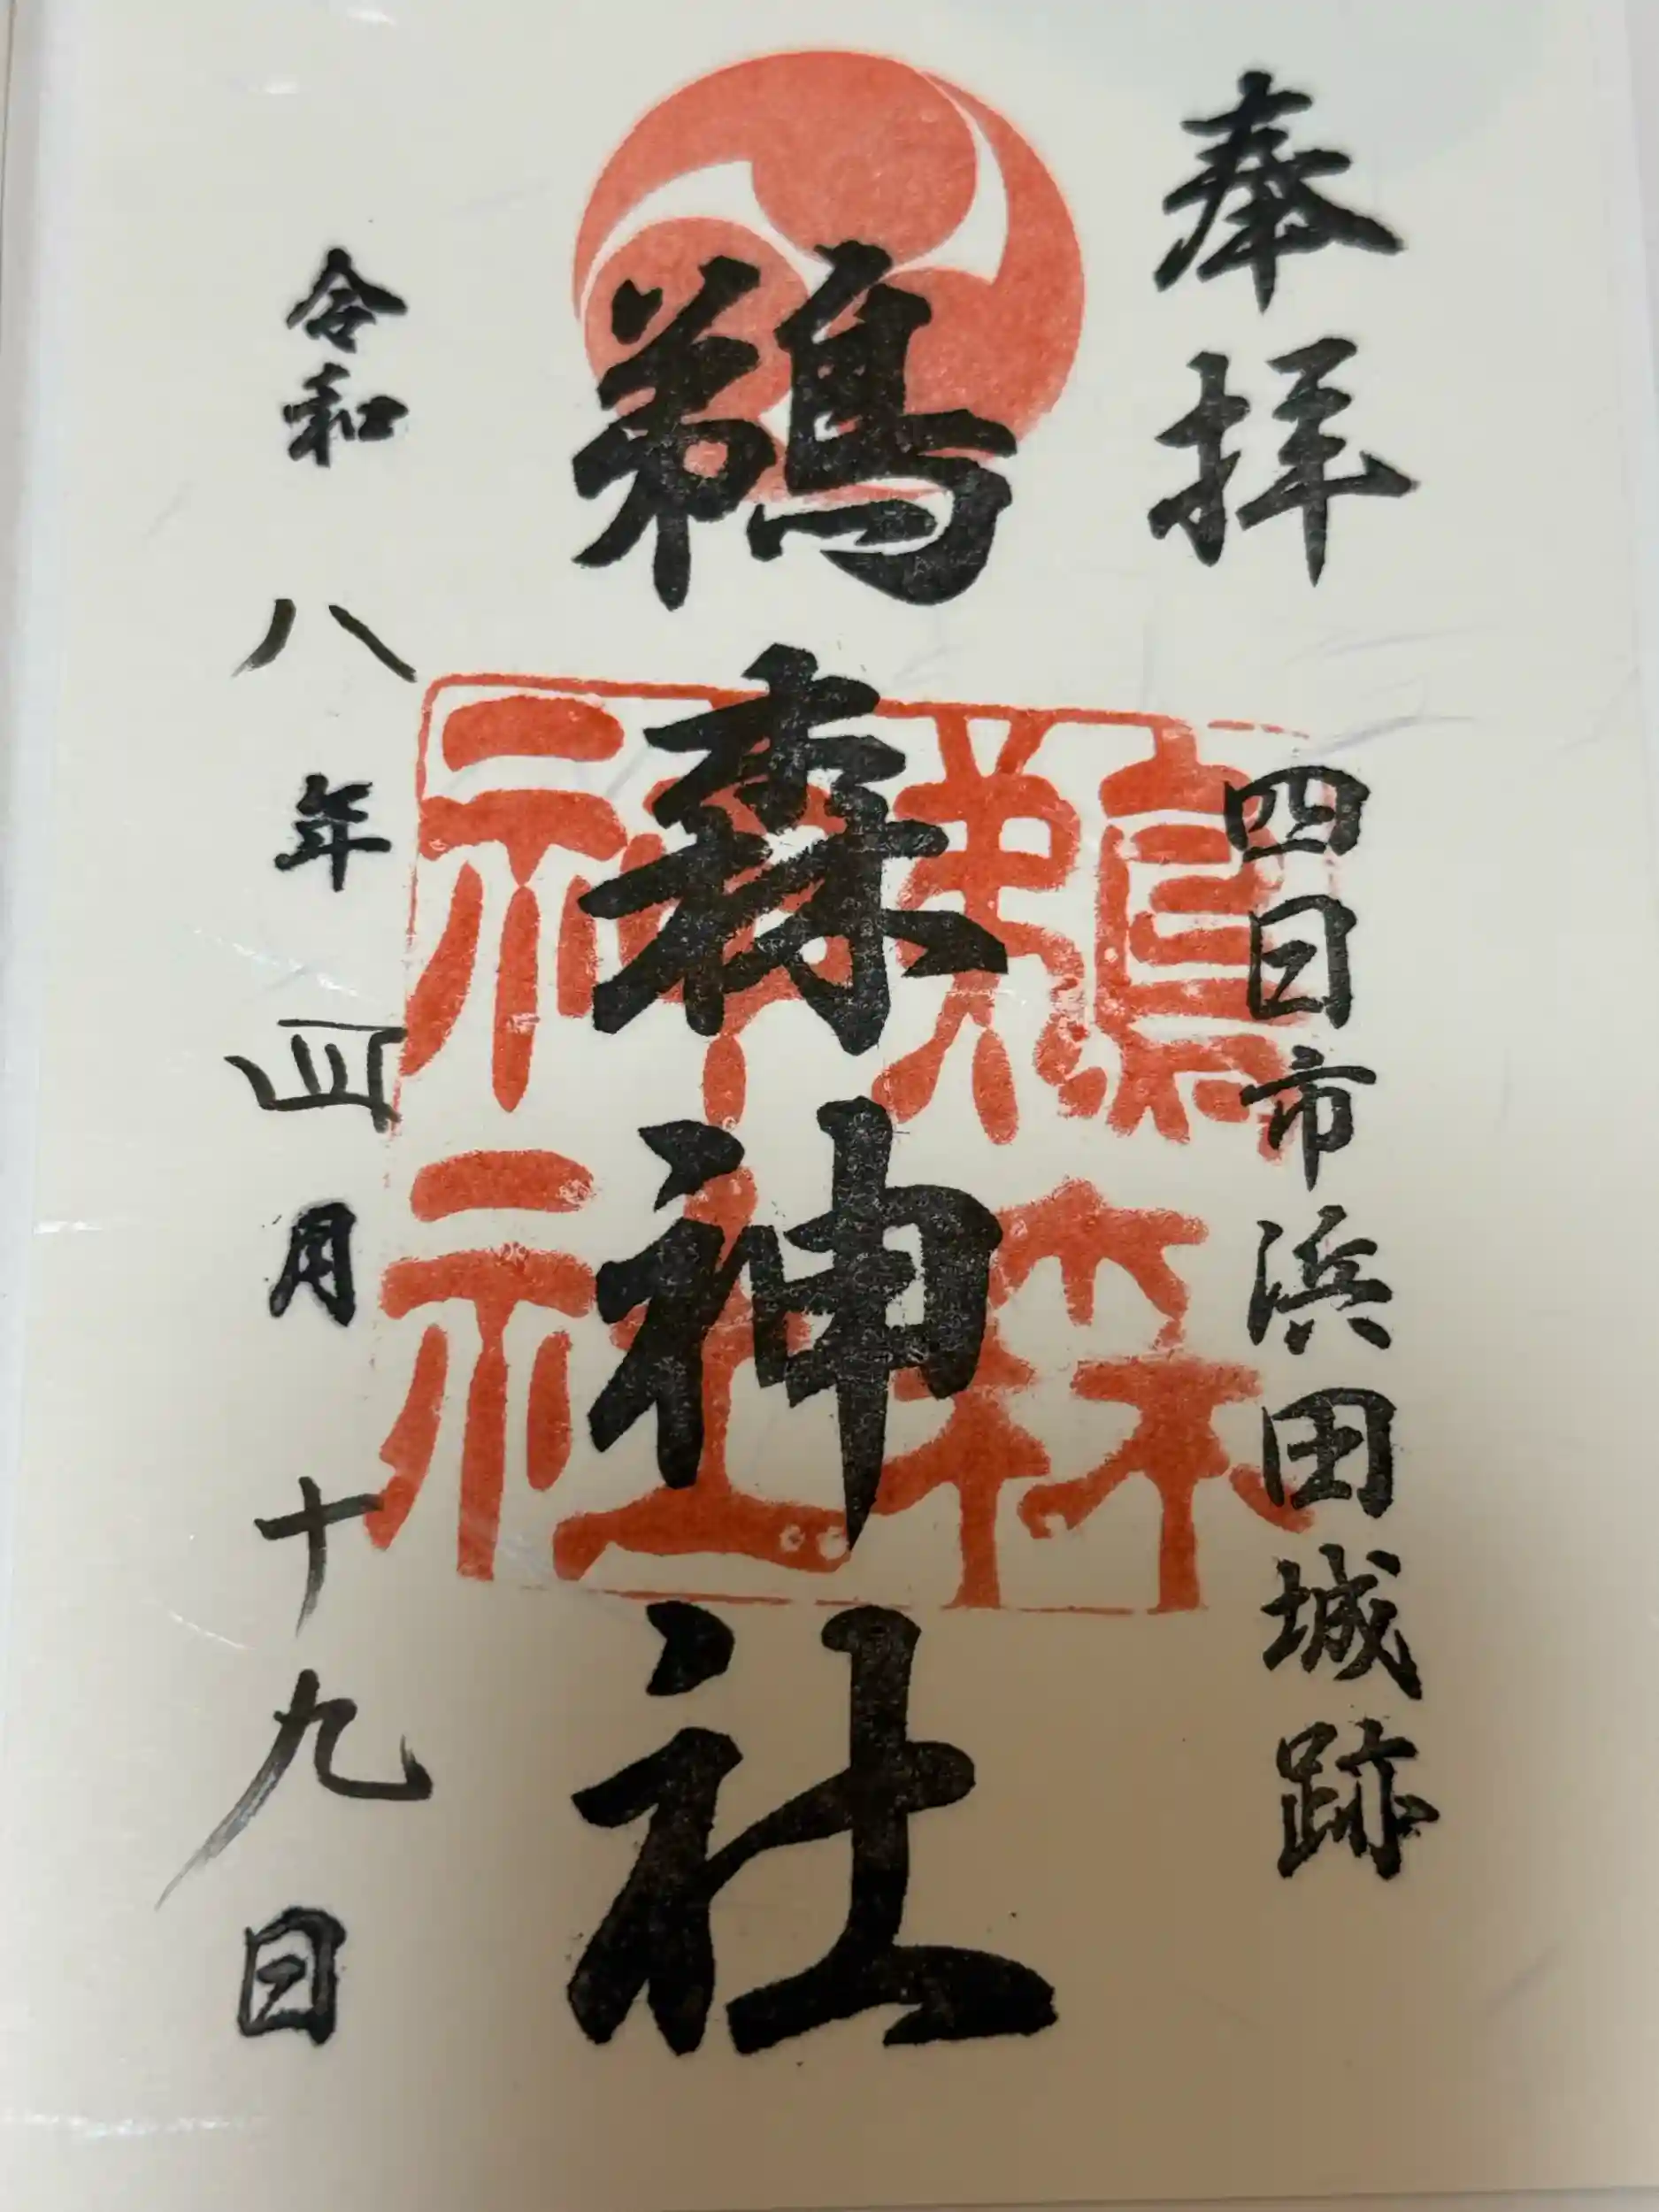 奉拝
四日市浜田城跡
鵜森神社
鵜森神社
令和八年四月十九日